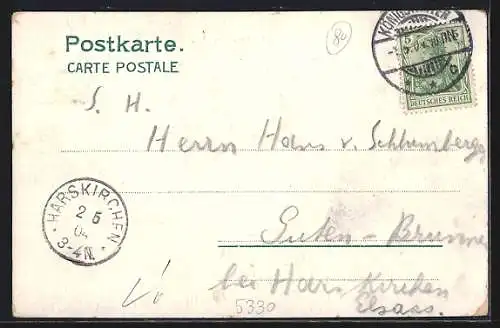 80
Postkarte.
CARTE POSTALE
DEUTSCHES REICH
S. H.
Herrn Hans v. Schlumberger
HARSKIRCHEN
2 5
04
3-4N.
Guten-Brunnen
bei Harskirchen
5330
Elsass.